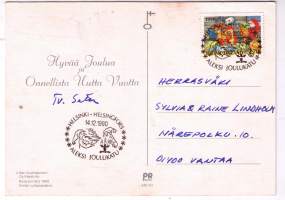 Hyvää Joulua
ja
Onnellista Uutta Vuotta
Tv.
HELSINKI - HELSINGFORS
14.12.1990
ALEKSI JOULUKATU
ALEKSI JOULUKATU
HERRASVÄKI
SYLVIA & RAINE LINDHOLM
NÄREPOLKU 10
01400 VANTAA
PR